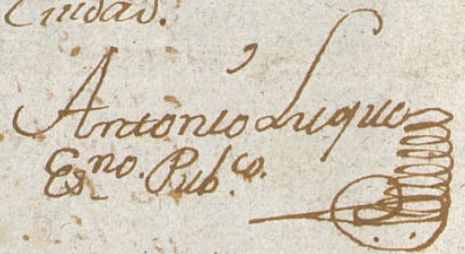 Ciudad.
Antonio Luque
Es.no Pub.co